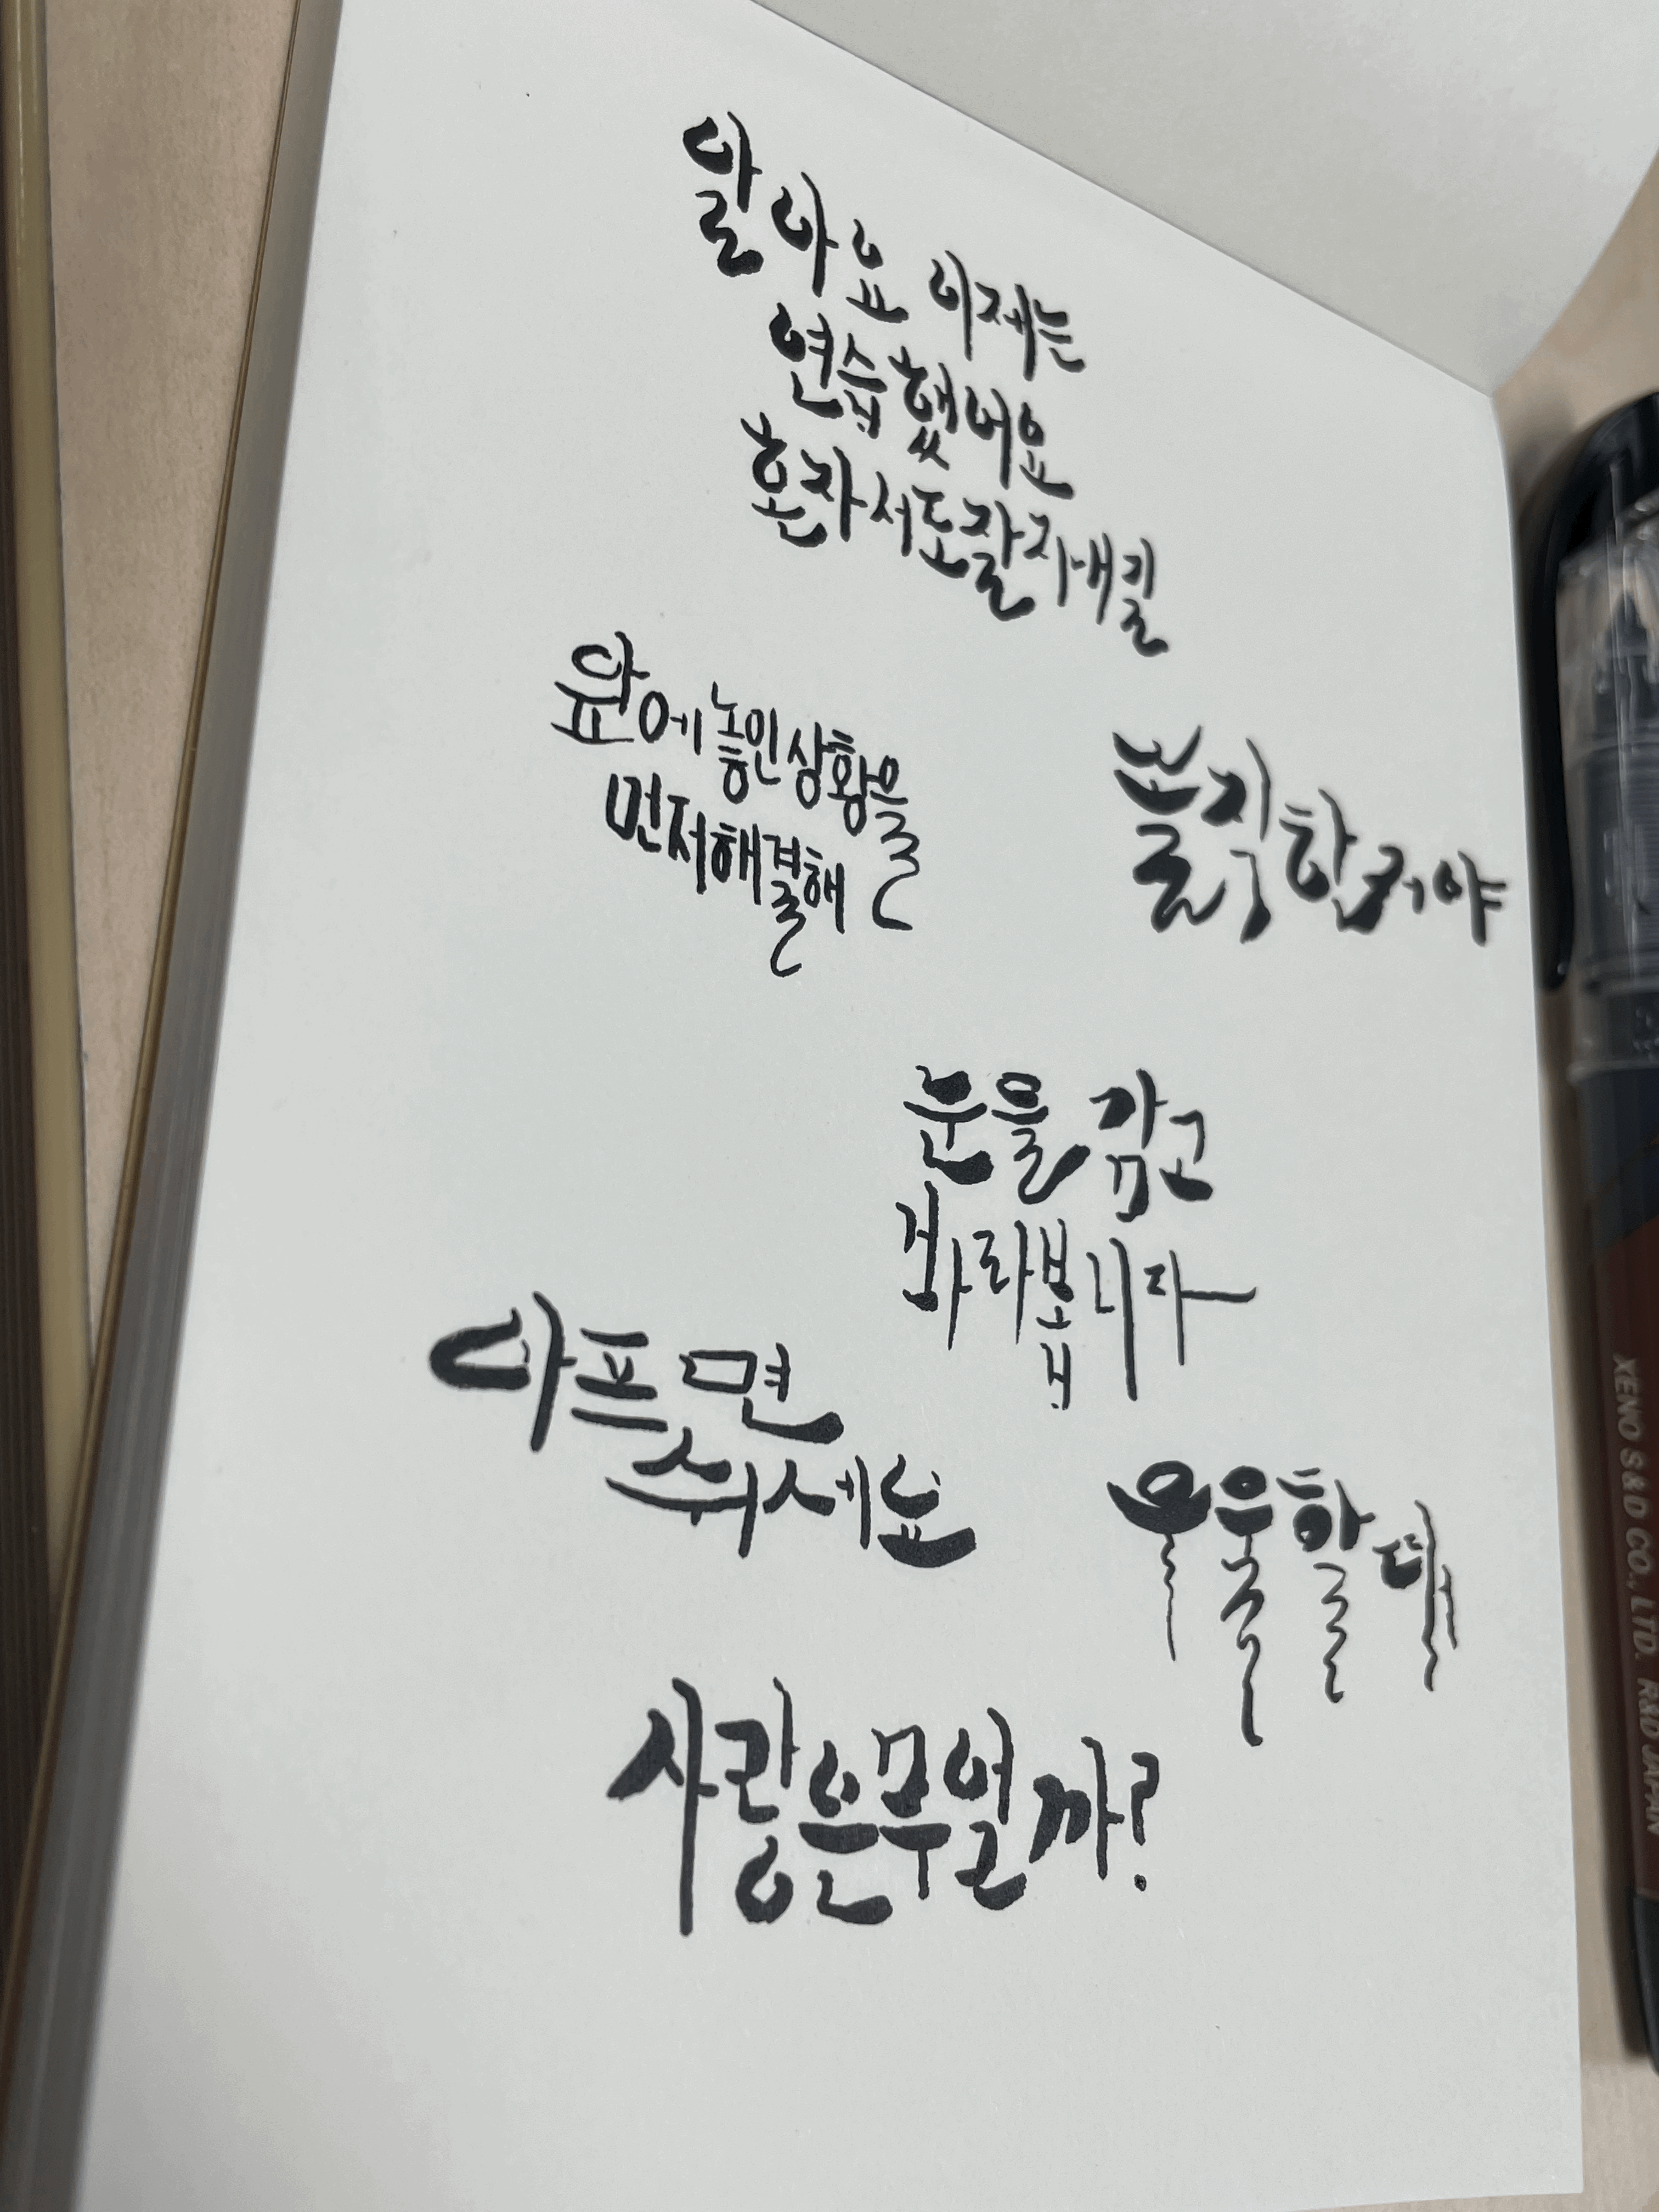 알아요 이제는
연습했어요
혼자서도 잘 지내길
앞에 놓인 상황을
먼저 해결해
솔직한 거야
눈을 감고
바라봅니다
아프면
쉬세요
우울할 때
사랑은 무얼까?
XENO S&D CO., LTD. R&D JAPAN